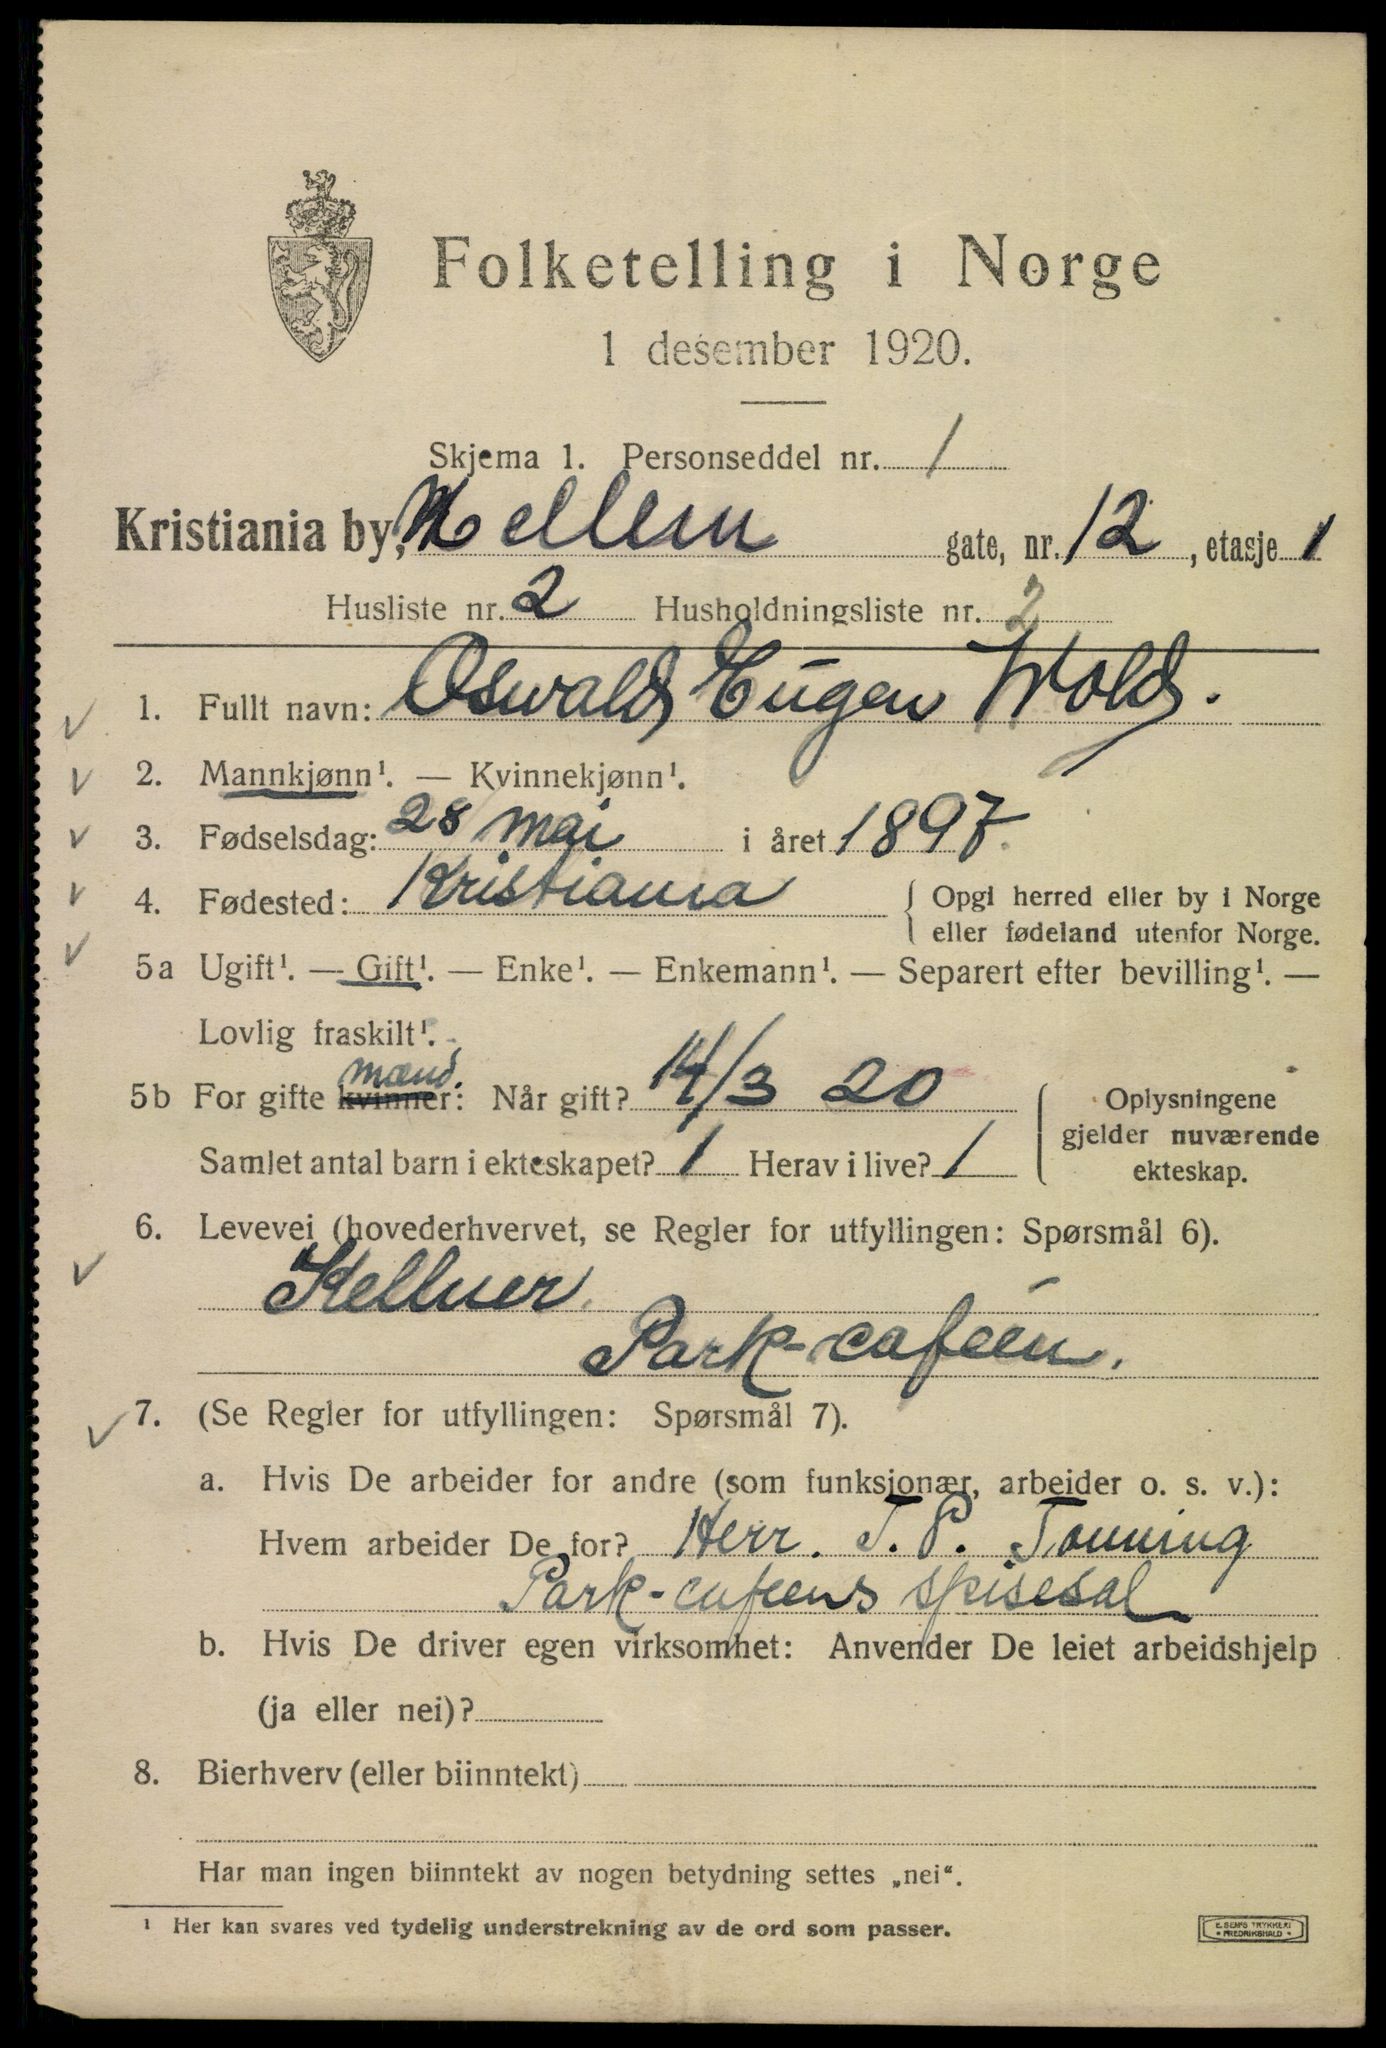 Folketelling i Norge
1 desember 1920.
Skjema 1. Personseddel nr. 1
Kristiania by, Hellem gate, nr. 12, etasje 1
Husliste nr. 2 Husholdningsliste nr. 2
1. Fullt navn: Oswald Eugen Wold.
2. Mannkjønn¹. — Kvinnekjønn¹.
3. Fødselsdag: 28 mai i året 1897.
4. Fødested: Kristiania { Opgi herred eller by i Norge
eller fødeland utenfor Norge.
5a Ugift¹. — Gift¹. — Enke¹. — Enkemann¹. — Separert efter bevilling¹. —
Lovlig fraskilt¹.
mænd.
5b For gifte kvinner: Når gift? 14/3 20 { Oplysningene
gjelder nuværende
Samlet antal barn i ekteskapet? 1 Herav i live? 1 ekteskap.
6. Levevei (hovederhvervet, se Regler for utfyllingen: Spørsmål 6).
Kellner.
Park-caféen.
7. (Se Regler for utfyllingen: Spørsmål 7).
a. Hvis De arbeider for andre (som funksjonær, arbeider o. s. v.):
Hvem arbeider De for? Herr. T. P. Tonning
Park-cafeens spisesal
b. Hvis De driver egen virksomhet: Anvender De leiet arbeidshjelp
(ja eller nei)?
8. Bierhverv (eller biinntekt)
Har man ingen biinntekt av nogen betydning settes „nei“.
¹ Her kan svares ved tydelig understrekning av de ord som passer.
E. SEM'S TRYKKERI
• FREDRIKSHALD •